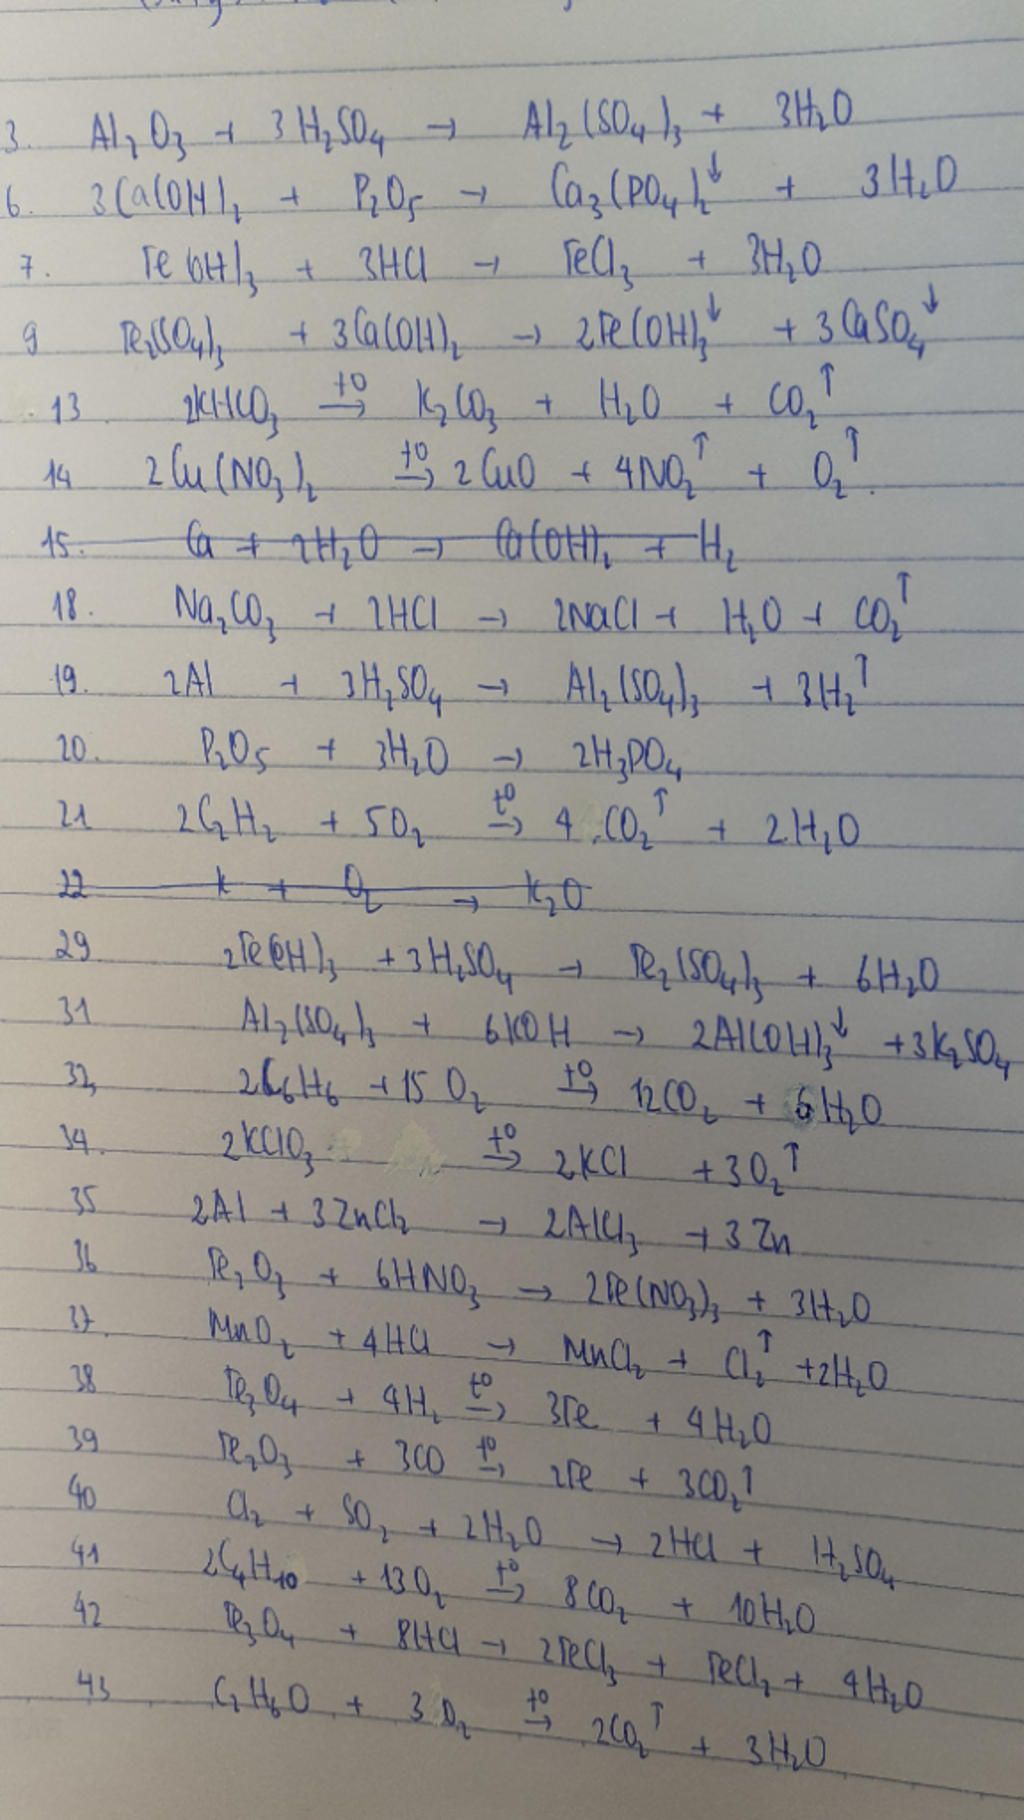 3. Al₂O₃ + 3H₂SO₄ → Al₂(SO₄)₃ + 3H₂O
6. 3Ca(OH)₂ + P₂O₅ → Ca₃(PO₄)₂↓ + 3H₂O
7. Fe(OH)₃ + 3HCl → FeCl₃ + 3H₂O
9 Fe₂(SO₄)₃ + 3Ca(OH)₂ → 2Fe(OH)₃↓ + 3CaSO₄↓
13 2KHCO₃ t⁰→ K₂CO₃ + H₂O + CO₂↑
14 2Cu(NO₃)₂ t⁰→ 2CuO + 4NO₂↑ + O₂↑.
15. Ca + 2H₂O → Ca(OH)₂ + H₂
18. Na₂CO₃ + 2HCl → 2NaCl + H₂O + CO₂↑
19. 2Al + 3H₂SO₄ → Al₂(SO₄)₃ + 3H₂↑
20. P₂O₅ + 3H₂O → 2H₃PO₄
21 2C₂H₂ + 5O₂ t⁰→ 4CO₂↑ + 2H₂O
22 K + O₂ → K₂O
29 2Fe(OH)₃ + 3H₂SO₄ → Fe₂(SO₄)₃ + 6H₂O
31 Al₂(SO₄)₃ + 6KOH → 2Al(OH)₃↓ + 3K₂SO₄
32, 2C₆H₆ + 15O₂ t⁰→ 12CO₂ + 6H₂O
34. 2KClO₃ t⁰→ 2KCl + 3O₂↑
35 2Al + 3ZnCl₂ → 2AlCl₃ + 3Zn
36 Fe₂O₃ + 6HNO₃ → 2Fe(NO₃)₃ + 3H₂O
37. MnO₂ + 4HCl → MnCl₂ + Cl₂↑ + 2H₂O
38 Fe₃O₄ + 4H₂ t⁰→ 3Fe + 4H₂O
39 Fe₂O₃ + 3CO t⁰→ 2Fe + 3CO₂↑
40 Cl₂ + SO₂ + 2H₂O → 2HCl + H₂SO₄
41 2C₄H₁₀ + 13O₂ t⁰→ 8CO₂ + 10H₂O
42 Fe₃O₄ + 8HCl → 2FeCl₃ + FeCl₂ + 4H₂O
43 C₂H₆O + 3O₂ t⁰→ 2CO₂↑ + 3H₂O